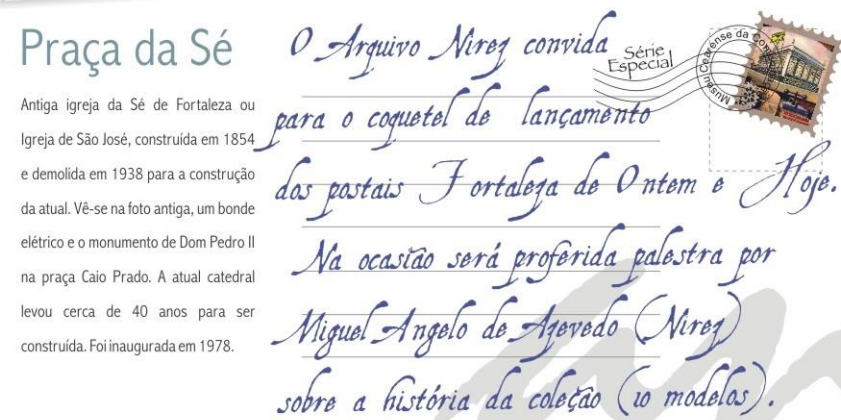 Praça da Sé
Antiga igreja da Sé de Fortaleza ou
Igreja de São José, construída em 1854
e demolida em 1938 para a construção
da atual. Vê-se na foto antiga, um bonde
elétrico e o monumento de Dom Pedro II
na praça Caio Prado. A atual catedral
levou cerca de 40 anos para ser
construída. Foi inaugurada em 1978.
O Arquivo Nirez convida
para o coquetel de lançamento
dos postais Fortaleza de Ontem e Hoje.
Na ocasião será proferida palestra por
Miguel Angelo de Azevedo (Nirez)
sobre a história da coleção (10 modelos).
Série
Especial
Museu Cearense da